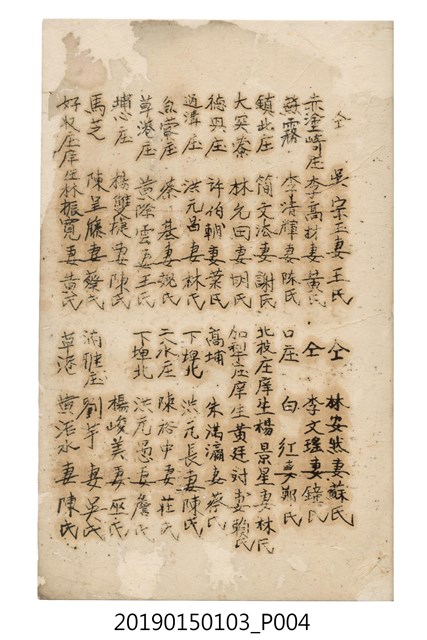 仝 吳宗玉妻王氏 仝 林安然妻蘇氏
赤塗崎庄 李高材妻黃氏 仝 李文瑤妻鐘氏
霧 李清輝妻陈氏 口庄 白 紅妻鄭氏
鎮北庄 簡文添妻謝氏 北投庄庠生楊景星妻林氏
大突寮 林允田妻胡氏 加犂庄庠生黃廷討妻賴氏
德興庄 許伯朝妻葉氏 高埔 朱滿瀛妻蔡氏
過溝庄 洪元 妻林氏 下埤北 洪元長妻陳氏
蒙庄 蔡 基妻魏氏 二水庄 陳裕中妻莊氏
草港庄 黃際雲妻王氏 下埤北 洪元愚妻詹氏
埔心庄 楊雙捷妻陳氏 楊峻美妻巫氏
馬芝 陳呈 妻蔡氏 湳雅庄 劉 芋 妻吳氏
好收庄庠生林振寬妻黃氏 草港 黃活水妻陳氏
20190150103_P004